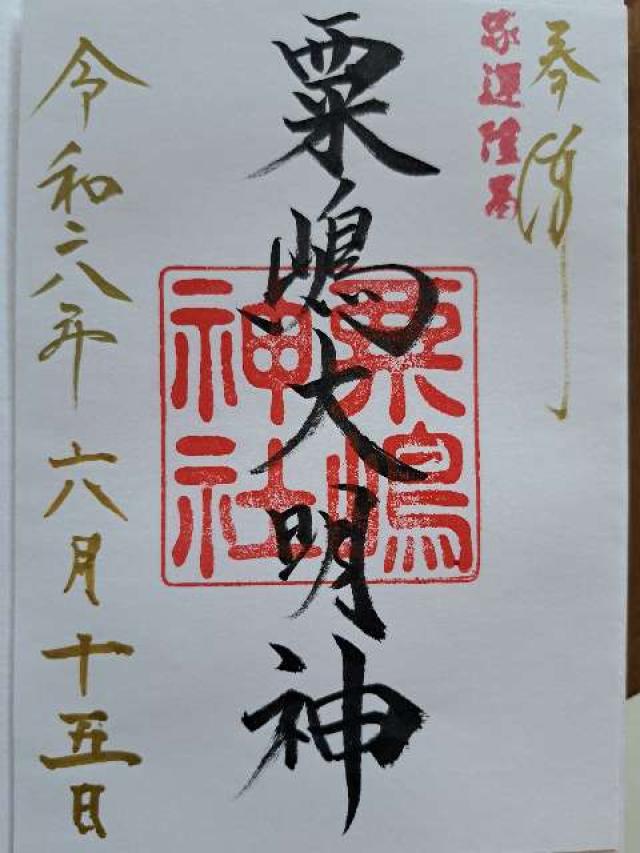 奉拝
家運隆昌
粟嶋大明神
粟嶋
神社
令和六年六月十五日